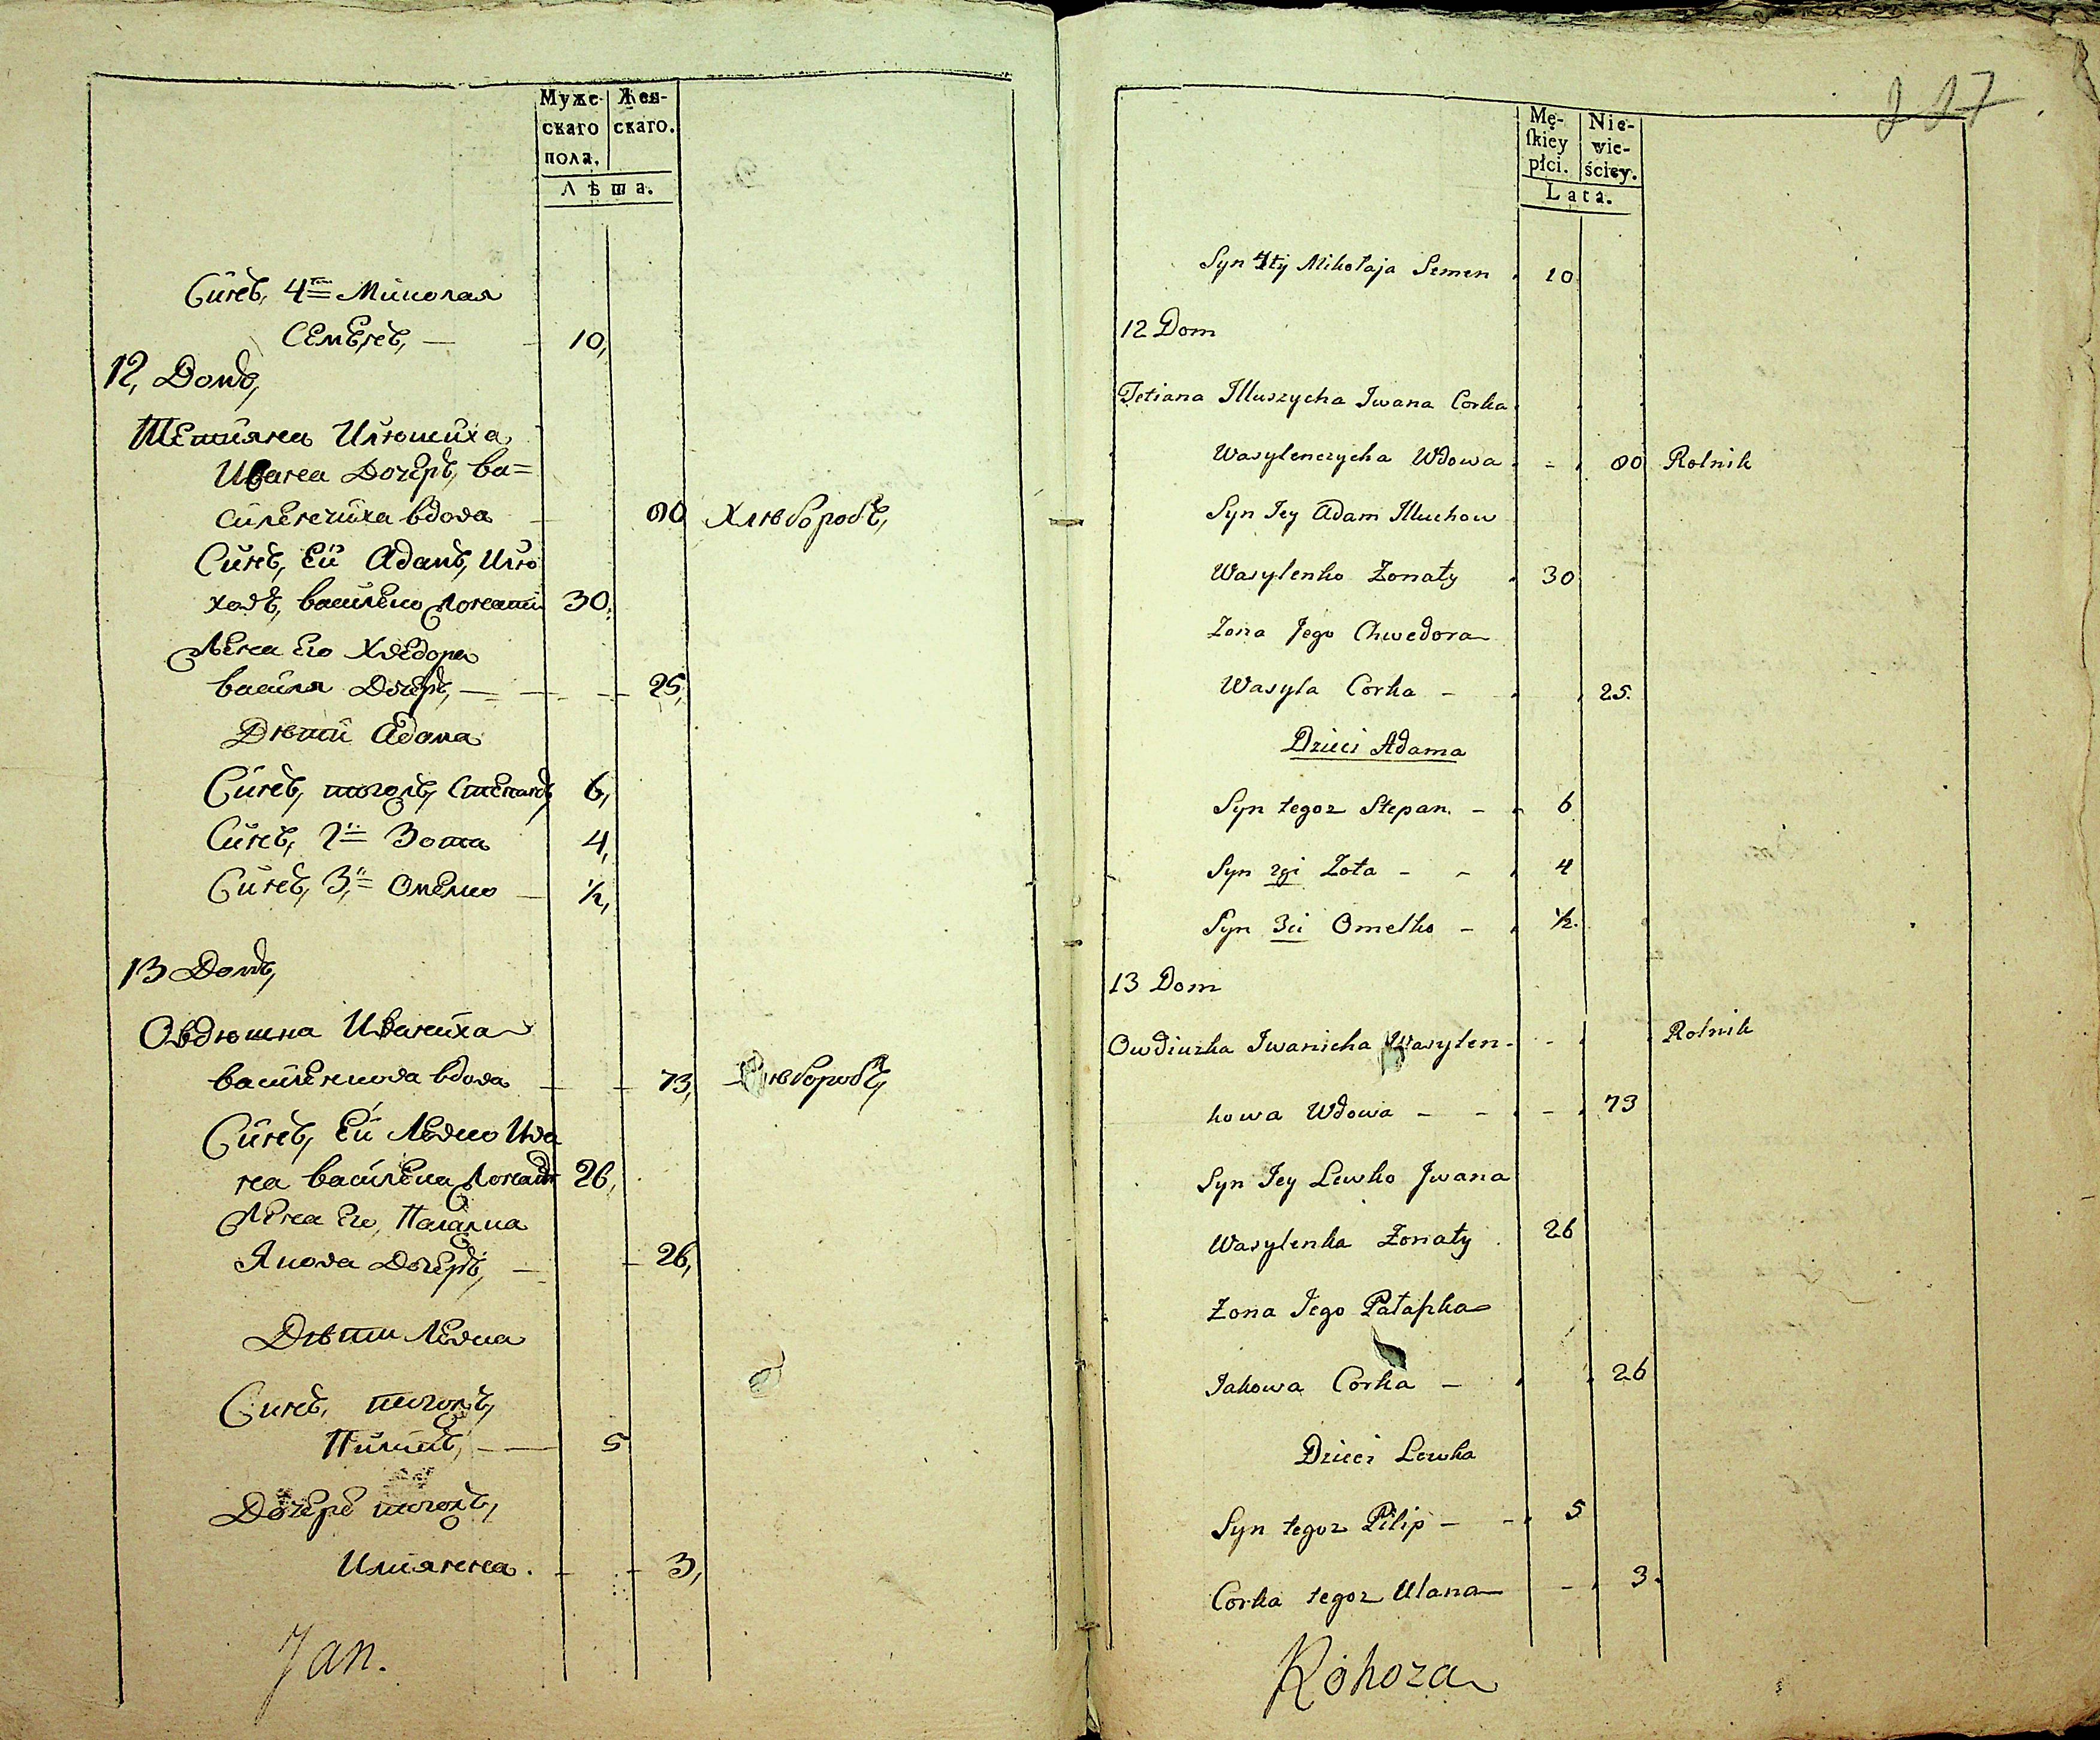 Муже-
скаго
пола.
Жен-
скаго.
Лѣта.
Синъ, 4й Миколая
Семенъ, — 10,
12, Домъ,
Тетияна Илюшиха
Ивана Дочеръ, ва=
силенчиха вдова 80 Хлѣборобъ,
Синъ, Ей Адамъ, Илю
ховъ, василенко жонатий 30,
Жена Его Хведора
василя Дочеръ, — 25,
Дѣти Адама
Синъ, тогожъ, Степанъ, 6,
Синъ, 2й Зота 4,
Синъ, 3й Омелко — ½,
13 Домъ,
Овдюшка Иваниха
василенкова вдова — 73, Хлѣборобъ,
Синъ, Ей Левко Ива
на василенка жонатий 26,
Жена Его, Палажка
Якова Дочеръ, — 26,
Дѣти Левка
Синъ, тогожъ,
Пилипъ, — 5
Дочеръ тогожъ,
Улиянна. 3,
Jan.
217
Mę-
ſkiey
płci.
Nie-
wie-
ściey.
Lata.
Syn 4ty Mikołaja Semen 10
12 Dom
Tetiana Illuszycha Iwana Corka
Wasylenczycha Wdowa - 80 Rolnik
Syn Jey Adam Illuchow
Wasylenko Zonaty 30
Zona Jego Chwedora
Wasyla Corka - 25.
Dzieci Adama
Syn tegoz Stepan. - 6
Syn 2gi Zota - - 4
Syn 3ci Omelko - ½.
13 Dom
Owdiuzka Iwanicha Wasylen- - Rolnik
kowa Wdowa - - - 73
Syn Jey Lewko Jwana
Wasylenka Zonaty 26
Zona Jego Pałaszka
Jakowa Corka - 26
Dzieci Lewka
Syn tegoz Pilip - - 5
Corka tegoz Ulana - 3.
Rohoza